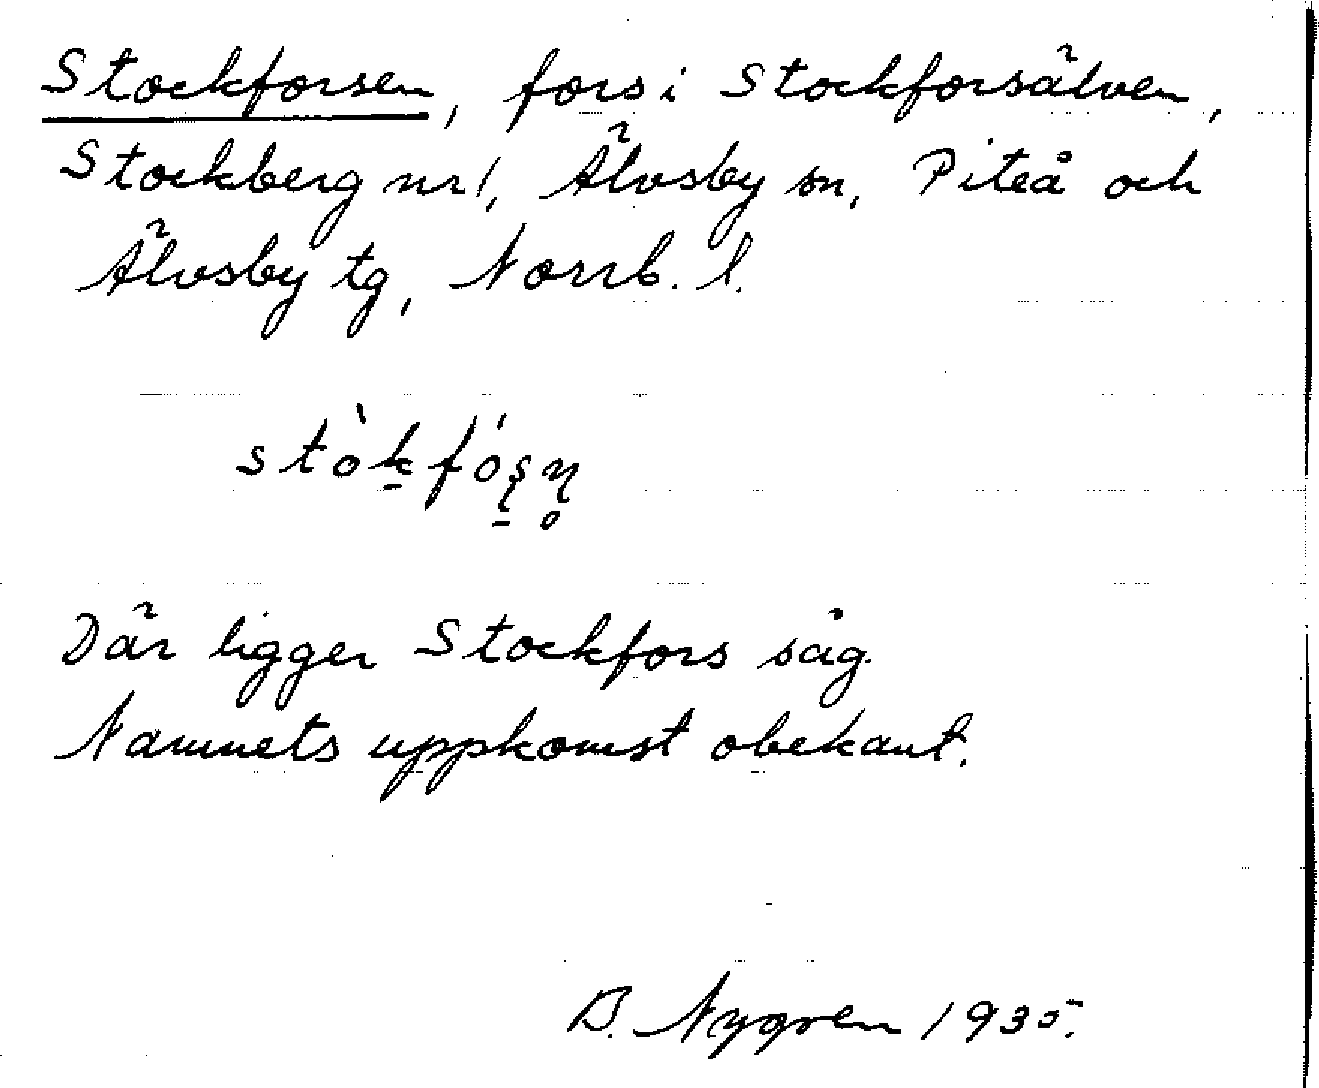 Stockforsen, fors i Stockforsälven,
Stockberg nr 1, Älvsby sn, Piteå och
Älvsby tg, Norrb. l.
stò̱kfó̱ʂn̥
Där ligger Stockfors såg.
Namnets uppkomst obekant.
B. Nygren 1935.